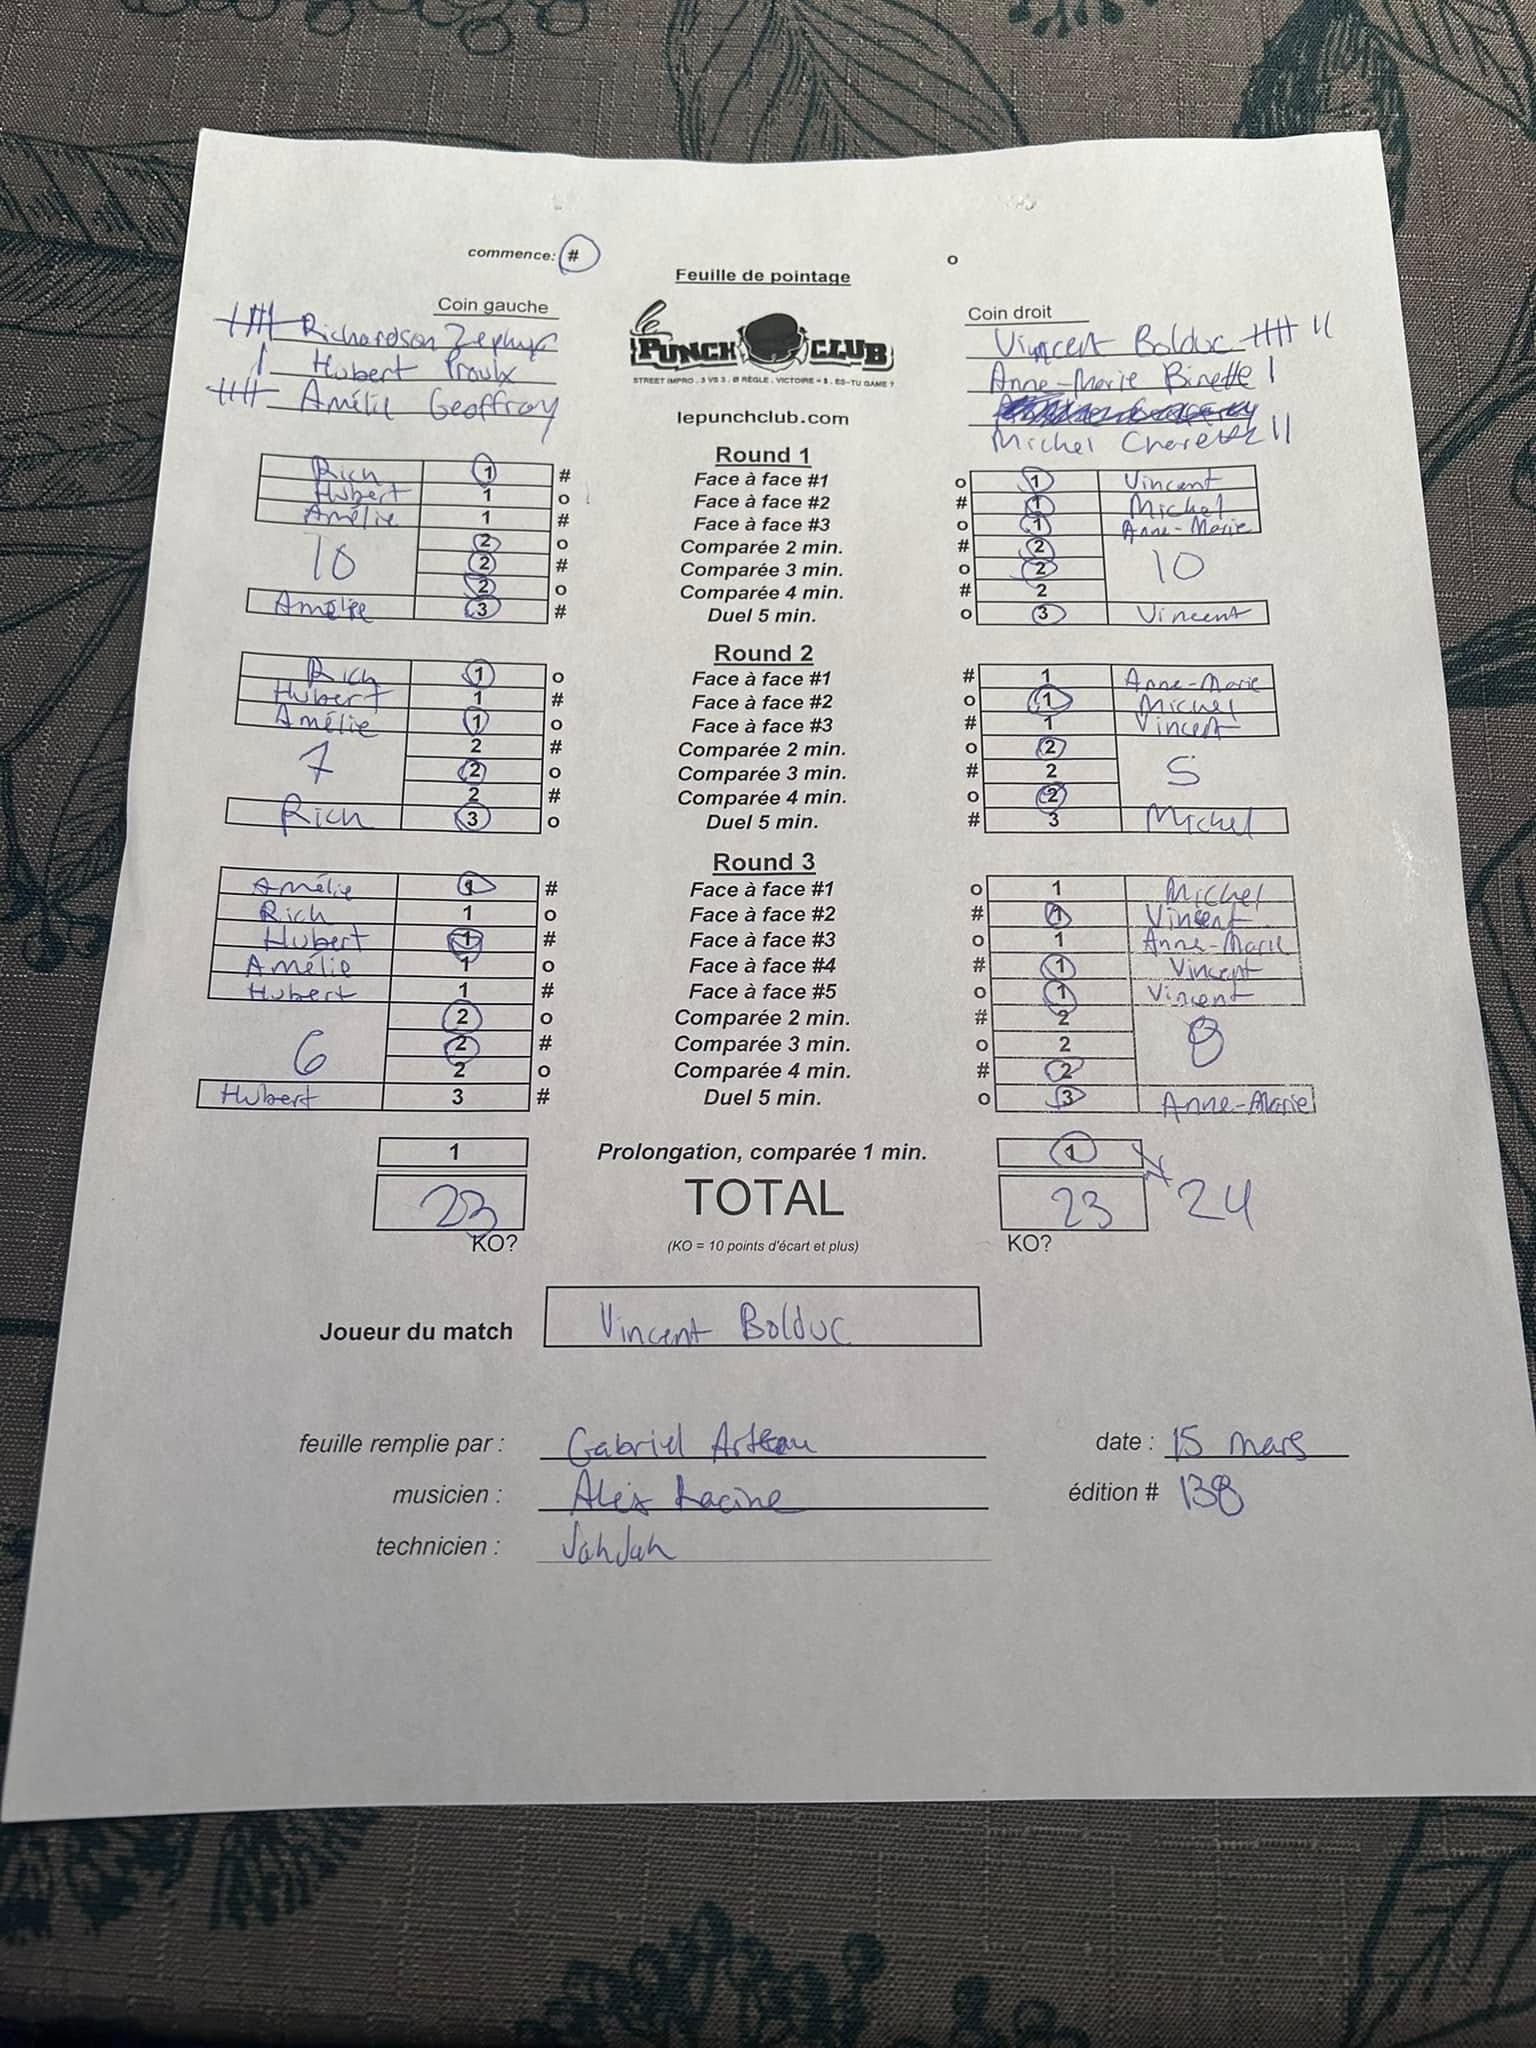 commence: # o
Feuille de pointage
Coin gauche Coin droit
Richardson Zephyr Vincent Bolduc
Hubert Proulx Anne-Marie Binette
Amélie Geoffroy
Michel
LE PUNCH CLUB
STREET IMPRO . 3 VS 3 . Ø RÈGLE . VICTOIRE = $ . ES-TU GAME ?
lepunchclub.com
Round 1
Rich 1 # Face à face #1 o 1 Vincent
Hubert 1 o Face à face #2 # 1 Michel
Amélie 1 # Face à face #3 o 1 Anne-Marie
2 o Comparée 2 min. # 2
10 2 # Comparée 3 min. o 2 10
2 o Comparée 4 min. # 2
Amélie 3 # Duel 5 min. o 3 Vincent
Round 2
Rich 1 o Face à face #1 # 1 Anne-Marie
Hubert 1 # Face à face #2 o 1 Michel
Amélie 1 o Face à face #3 # 1 Vincent
2 # Comparée 2 min. o 2
7 2 o Comparée 3 min. # 2 5
2 # Comparée 4 min. o 2
Rich 3 o Duel 5 min. # 3 Michel
Round 3
Amélie 1 # Face à face #1 o 1 Michel
Rich 1 o Face à face #2 # 1 Vincent
Hubert 1 # Face à face #3 o 1 Anne-Marie
Amélie 1 o Face à face #4 # 1 Vincent
Hubert 1 # Face à face #5 o 1 Vincent
2 o Comparée 2 min. # 2
6 2 # Comparée 3 min. o 2 8
2 o Comparée 4 min. # 2
Hubert 3 # Duel 5 min. o 3 Anne-Marie
1 Prolongation, comparée 1 min. 1
23 TOTAL 23 24
KO? (KO = 10 points d'écart et plus) KO?
Joueur du match Vincent Bolduc
feuille remplie par : Gabriel Arteau date : 15 mars
musicien : Alex Racine édition # 138
technicien : JahJah